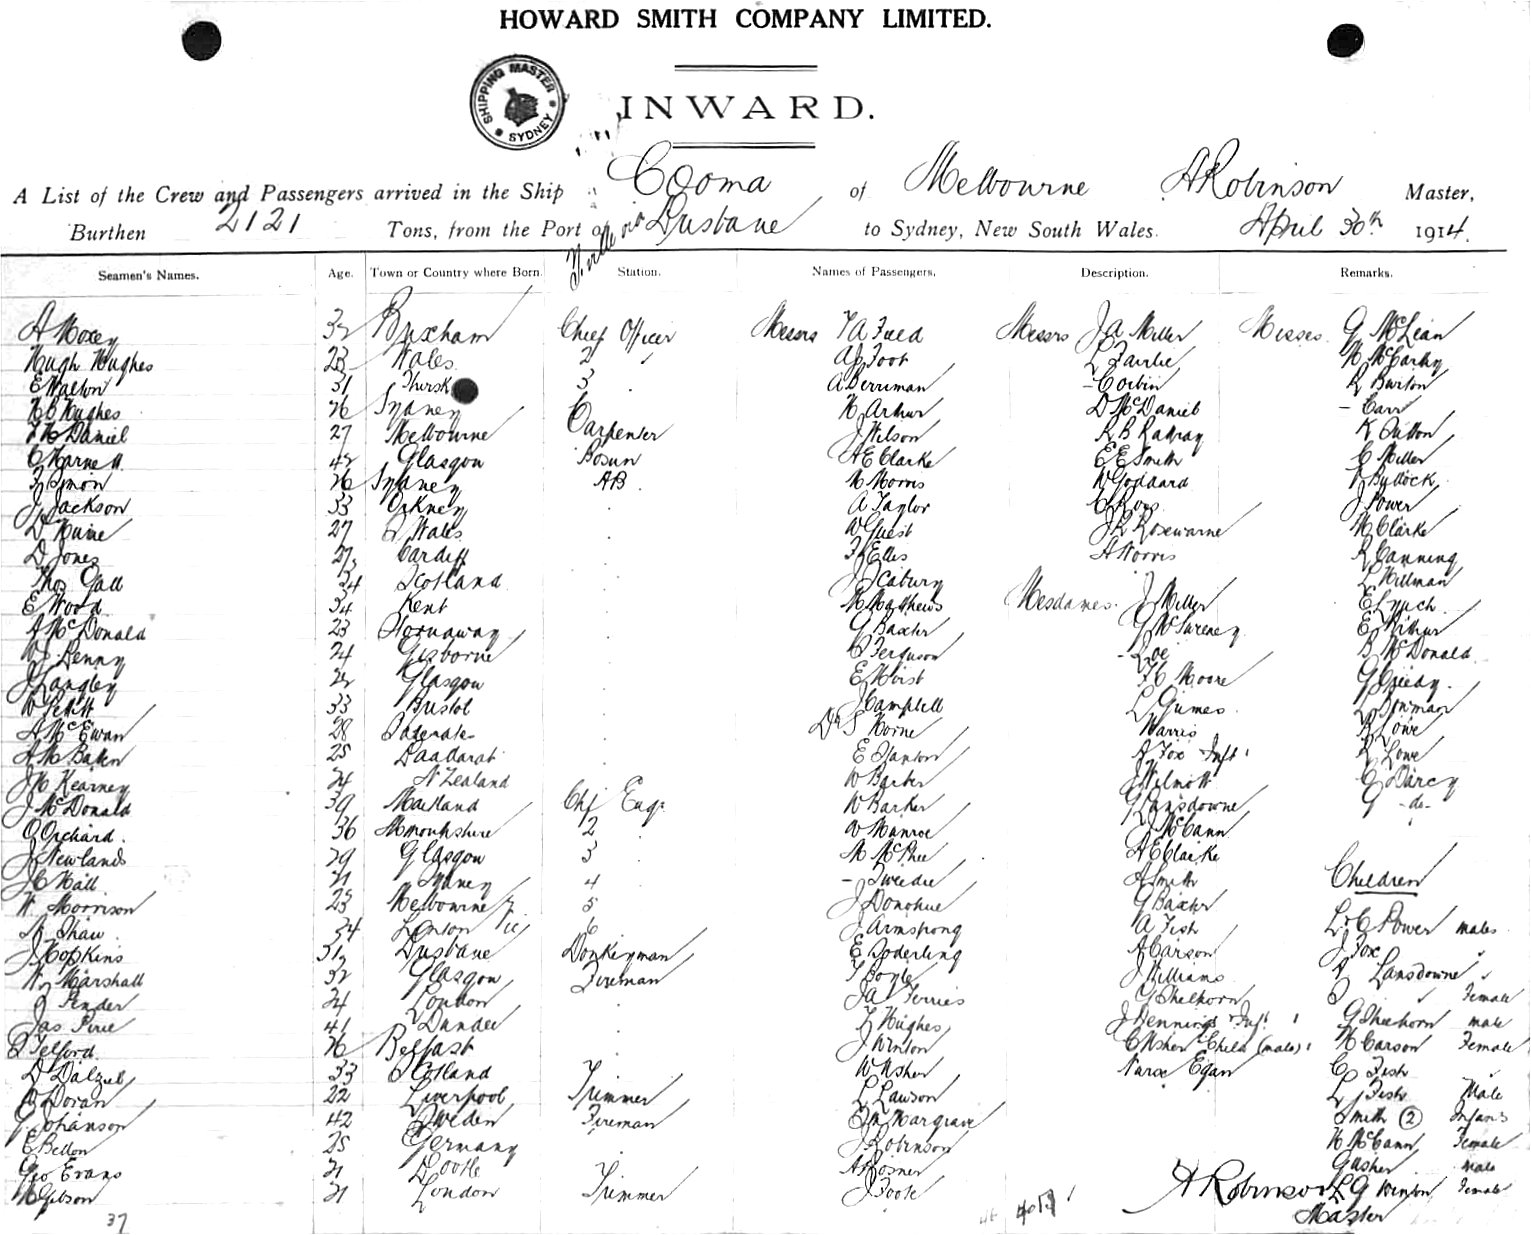 HOWARD SMITH COMPANY LIMITED.
SHIPPING MASTER SYDNEY
INWARD.
A List of the Crew and Passengers arrived in the Ship Cooma of Melbourne A Robinson Master,
Burthen 2121 Tons, from the Port of via Brisbane to Sydney, New South Wales. April 30th 1914.
Seamen's Names. Age. Town or Country where Born. Station. Names of Passengers. Description. Remarks.
A Moxey 32 Brixham Chief Officer Messrs Messrs J A Miller Misses G McLean
Hugh Hughes 23 Wales 2 A J Foot L Fairlie M McCarthy
E Walton 31 Thirsk 3 A Berriman - Corbin R Burton
H B Hughes 26 Sydney Carpenter H Arthur D McDaniel - Carr
McDaniel 27 Melbourne J Wilson R B Rattray K Sutton
C Harnett 42 Glasgow Bosun A E Clarke E E Smith C Miller
Simon 26 Sydney AB. Morris W Goddard Bullock
J Jackson 33 Orkney A Taylor Ross J Power
D 27 Wales W Guest J R Rosewarne H Clarke
D Jones 27 Cardiff Ellis A Norris R Canning
Thos Gall 24 Scotland L Millman
E Wood 34 Kent Matthews Mesdames. J Miller E Lynch
A McDonald 23 Stornaway G Baxter G McSweeney E Arthur
Denny 24 Gisborne Ferguson - B McDonald
J Langley 22 Glasgow E Hoist Moore G
W Pettitt 33 Bristol J Campbell L Grimes
A McEwan 28 Dr S Horne Harris R Lowe
25 E Stanton A Fox Inft 1 R Lowe
J H Kearney 24 N Zealand W Barber J Wilmott C Darcy
J McDonald 39 Maitland Chf Engr W Barker G Lansdowne G -do-
O Orchard. 36 2 Monroe McCann
J Newlands 29 Glasgow 3 McPhee A E Clarke
J C Hall 21 Sydney 4 - Tweedie A Smith Children
W Morrison 23 Melbourne 5 J Donohue G Baxter
Shaw. 34 Linton Vic 6 J Armstrong A Fish L & C Power males
J Hopkins 31 Brisbane Donkeyman E Soderling A Carson J Fox "
W Marshall 32 Glasgow Fireman T Boyle J Williams R Lansdowne "
J Pender 24 London J A Ferries G Shelhorn " Female
Jas Pirie 41 Dundee Hughes J Jennings Inft 1 G Shelhorn male
Telford 26 Belfast J Winton C Usher Child (male) 1 H Carson Female
D Dalziel 33 Scotland W Usher Nurse Egan C Fish "
Doran 22 Liverpool Trimmer L Lawson L Fish Male
Johanson 42 Sweden Fireman Hargrave Smith (2) Infants
E Bellon 25 Germany J Robinson H McCann Female
Geo Evans 21 Bootle A Rosner G Usher male
Gibson 21 London Trimmer J Foote L G Winton Female
37 A Robinson
Master